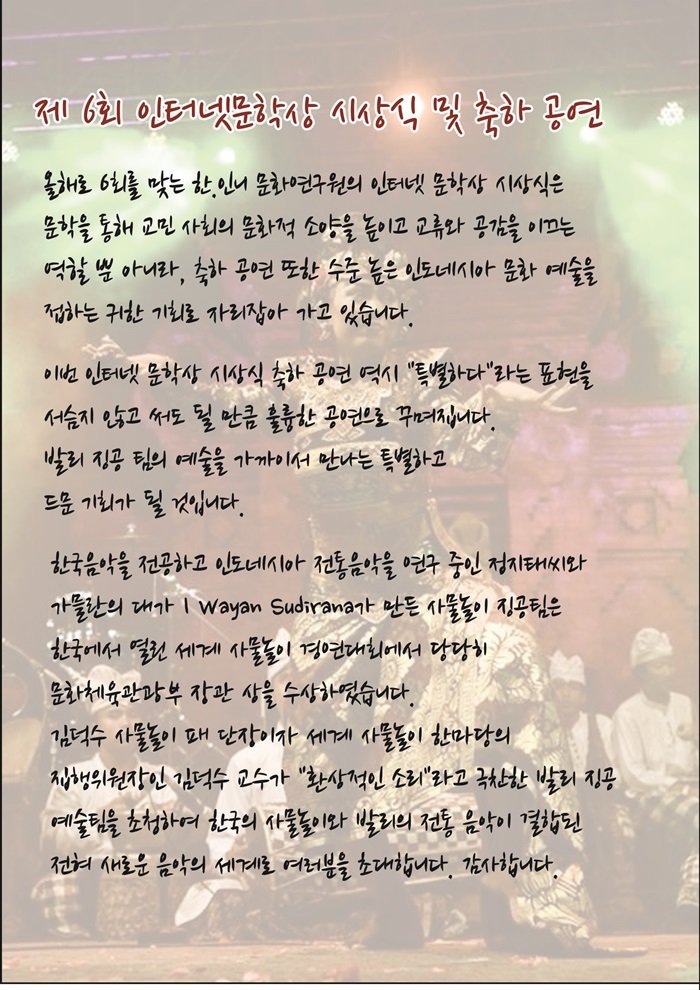 제 6회 인터넷문학상 시상식 및 축하 공연
올해로 6회를 맞는 한.인니 문화연구원의 인터넷 문학상 시상식은
문학을 통해 교민 사회의 문화적 소양을 높이고 교류와 공감을 이끄는
역할 뿐 아니라, 축하 공연 또한 수준 높은 인도네시아 문화 예술을
접하는 귀한 기회로 자리잡아 가고 있습니다.
이번 인터넷 문학상 시상식 축하 공연 역시 "특별하다"라는 표현을
서슴지 않고 써도 될 만큼 훌륭한 공연으로 꾸며집니다.
발리 징공 팀의 예술을 가까이서 만나는 특별하고
드문 기회가 될 것입니다.
한국음악을 전공하고 인도네시아 전통음악을 연구 중인 정지태씨와
가믈란의 대가 I Wayan Sudirana가 만든 사물놀이 징공팀은
한국에서 열린 세계 사물놀이 경연대회에서 당당히
문화체육관광부 장관 상을 수상하였습니다.
김덕수 사물놀이 패 단장이자 세계 사물놀이 한마당의
집행위원장인 김덕수 교수가 "환상적인 소리"라고 극찬한 발리 징공
예술팀을 초청하여 한국의 사물놀이와 발리의 전통 음악이 결합된
전혀 새로운 음악의 세계로 여러분을 초대합니다. 감사합니다.